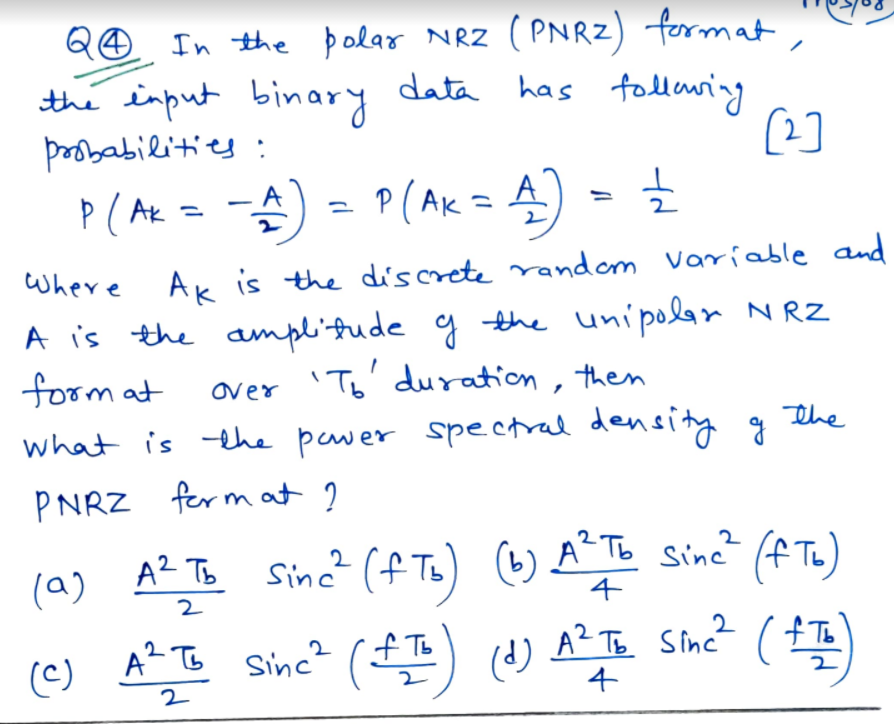 Q④ In the polar NRZ (PNRZ) format,
the input binary data has following
probabilities : [2]
P(AK = -A/2) = P(AK = A/2) = 1/2
where AK is the discrete random variable and
A is the amplitude of the unipolar NRZ
format over 'Tb' duration, then
what is the power spectral density of the
PNRZ format ?
(a) A² Tb/2 Sinc² (f Tb) (b) A² Tb/4 Sinc² (f Tb)
(c) A² Tb/2 Sinc² (f Tb/2) (d) A² Tb/4 Sinc² (f Tb/2)